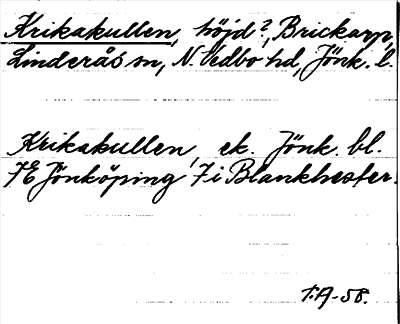 Krikakullen, höjd?, Brickarp,
Linderås sn, N. Vedbo hd, Jönk. l.
Krikakullen, ek. Jönk. bl.
7E Jönköping 7i Blankhester.
T.A-58.